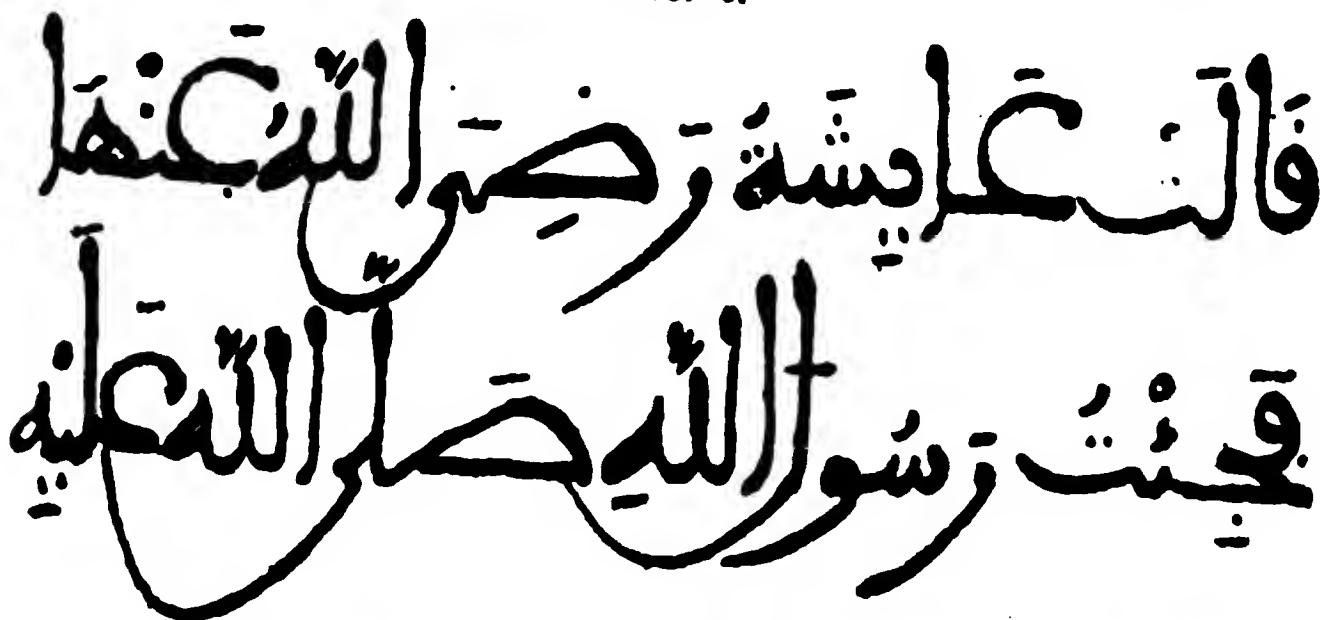 فَالَتْ عَايِشَةُ رَضِىَ اللَّهُ عَنْهَا
فَجِئْتُ رَسُولَ اللَّهِ صَلَّى اللَّهُ عَلَيْهِ